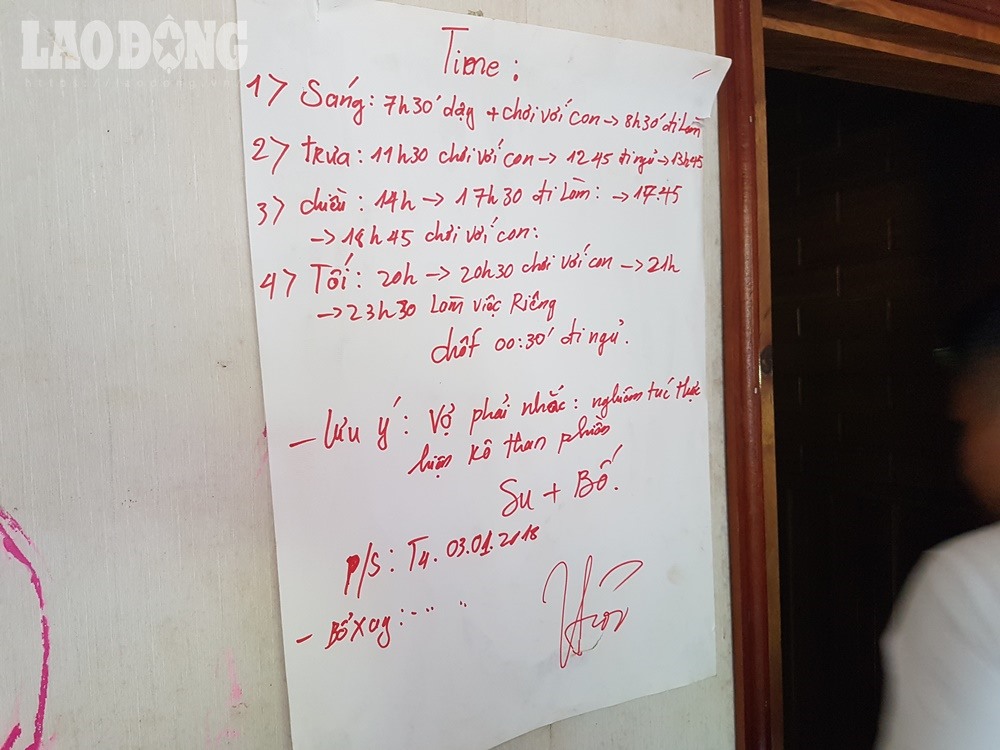 LAO ĐỘNG
Time:
1> Sáng: 7h30' dạy + chơi với con → 8h30' đi Làm
2> trưa: 11h30 chơi với con → 12 45 đi ngủ → 13h45
3> chiều: 14h → 17h30 đi Làm: → 17:45
→ 18h45 chơi với con:
4> Tối: 20h → 20h30 chơi với con → 21h
→ 23h30 Làm việc Riêng
chốt 00:30' đi ngủ.
- Lưu ý: Vợ phải nhắc: nghiêm túc thực
hiện Kô than phiền
Su + Bố.
p/s: T4. 03.01.2018